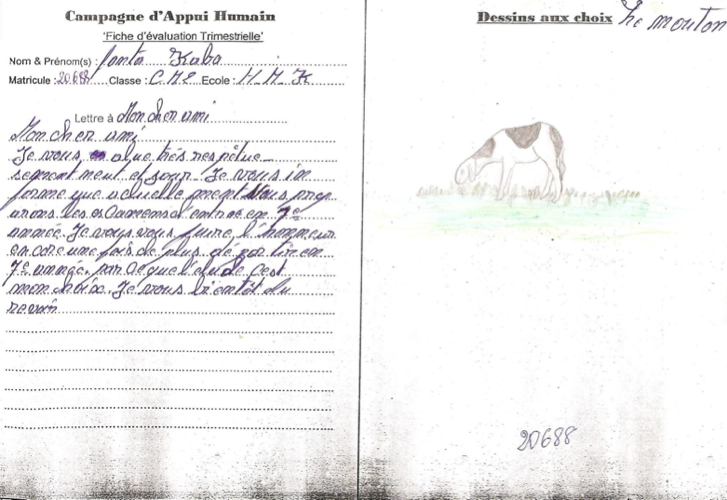 Campagne d'Appui Humain
'Fiche d'évaluation Trimestrielle'
Nom & Prénom(s) : Fonta Kaba
Matricule : 20688 Classe : C.M.2 Ecole : H.M.K
Lettre à Mon cher ami
Mon cher ami
Je vous que très respectue
sement et Je vous in
forme que actuelle ment Nous prep
arons les examens d'entrée en 7e
année. Je vous l'honneur
encore une fois de plus de en
7e année. l'étude c'est
mon choix. Je vous bientôt du
revoir
Dessins aux choix Le mouton
20688